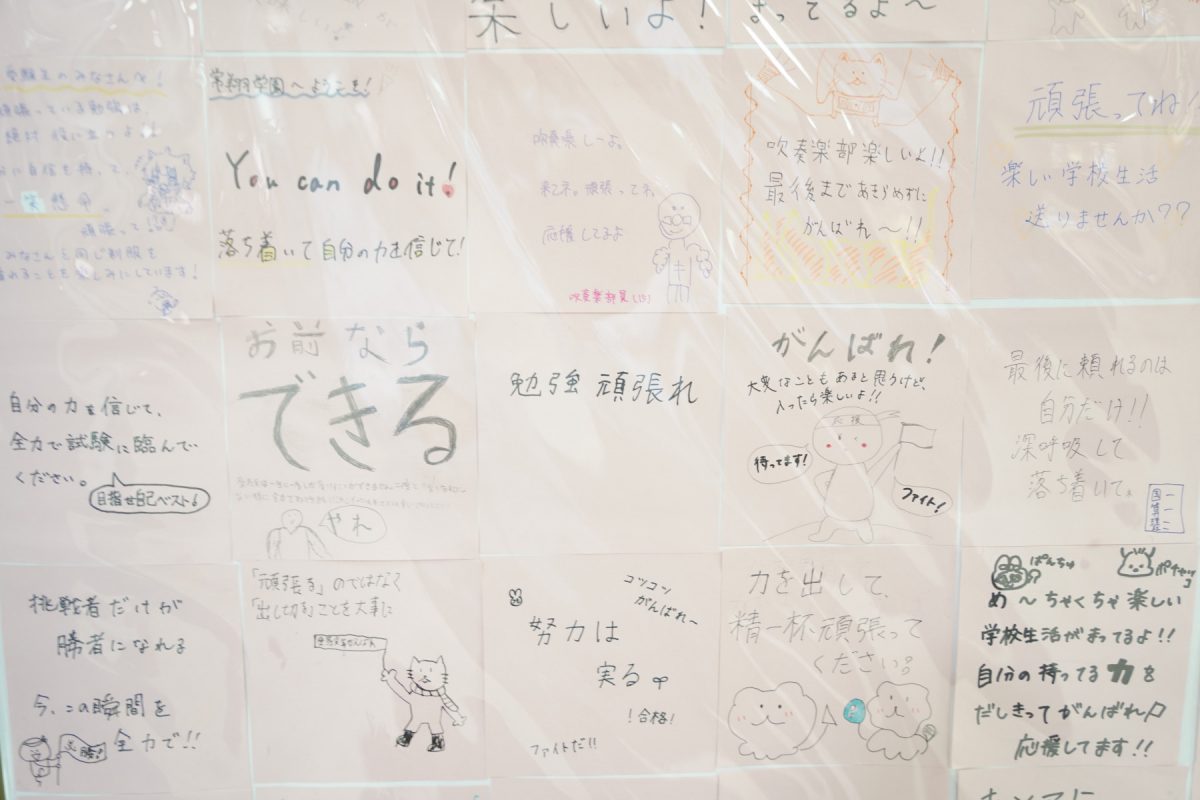 楽しいよ!
まってるよ〜
受験生のみなさんへ!
頑張っている勉強は、
絶対 役に立つよ!
自信を持って、
一笑懸命
頑張って!
みなさんと同じ制服を
ことを楽しみにしています!
常翔学園へようこそ!
You can do it!
落ち着いて自分の力を信じて!
吹奏楽しーよ。
来てネ。頑張ってネ。
応援してるよ
吹奏楽部員
吹奏楽部楽しいよ!!
最後まであきらめずに
がんばれ〜!!
頑張ってね!
楽しい学校生活
送りませんか??
自分の力を信じて、
全力で試験に臨んで
ください。
目指せ自己ベスト!
お前なら
できる
やれ
勉強 頑張れ
がんばれ!
大変なこともあると思うけど、
入ったら楽しいよ!!
応援
待ってます!
ファイト!
最後に頼れるのは
自分だけ!!
深呼吸して
落ち着いて。
挑戦者だけが
勝者になれる
今、この瞬間を
全力で!!
「頑張る」のではなく
「出し切る」ことを大事に
コツコツ
がんばれ〜
努力は
実る
!合格!
ファイトだ!!
力を出して、
精一杯頑張って
ください?
ぱんちゅ
ポチャッコ
め〜ちゃくちゃ楽しい
学校生活がまってるよ!!
自分の持ってる力を
だしきってがんばれ
応援してます!!